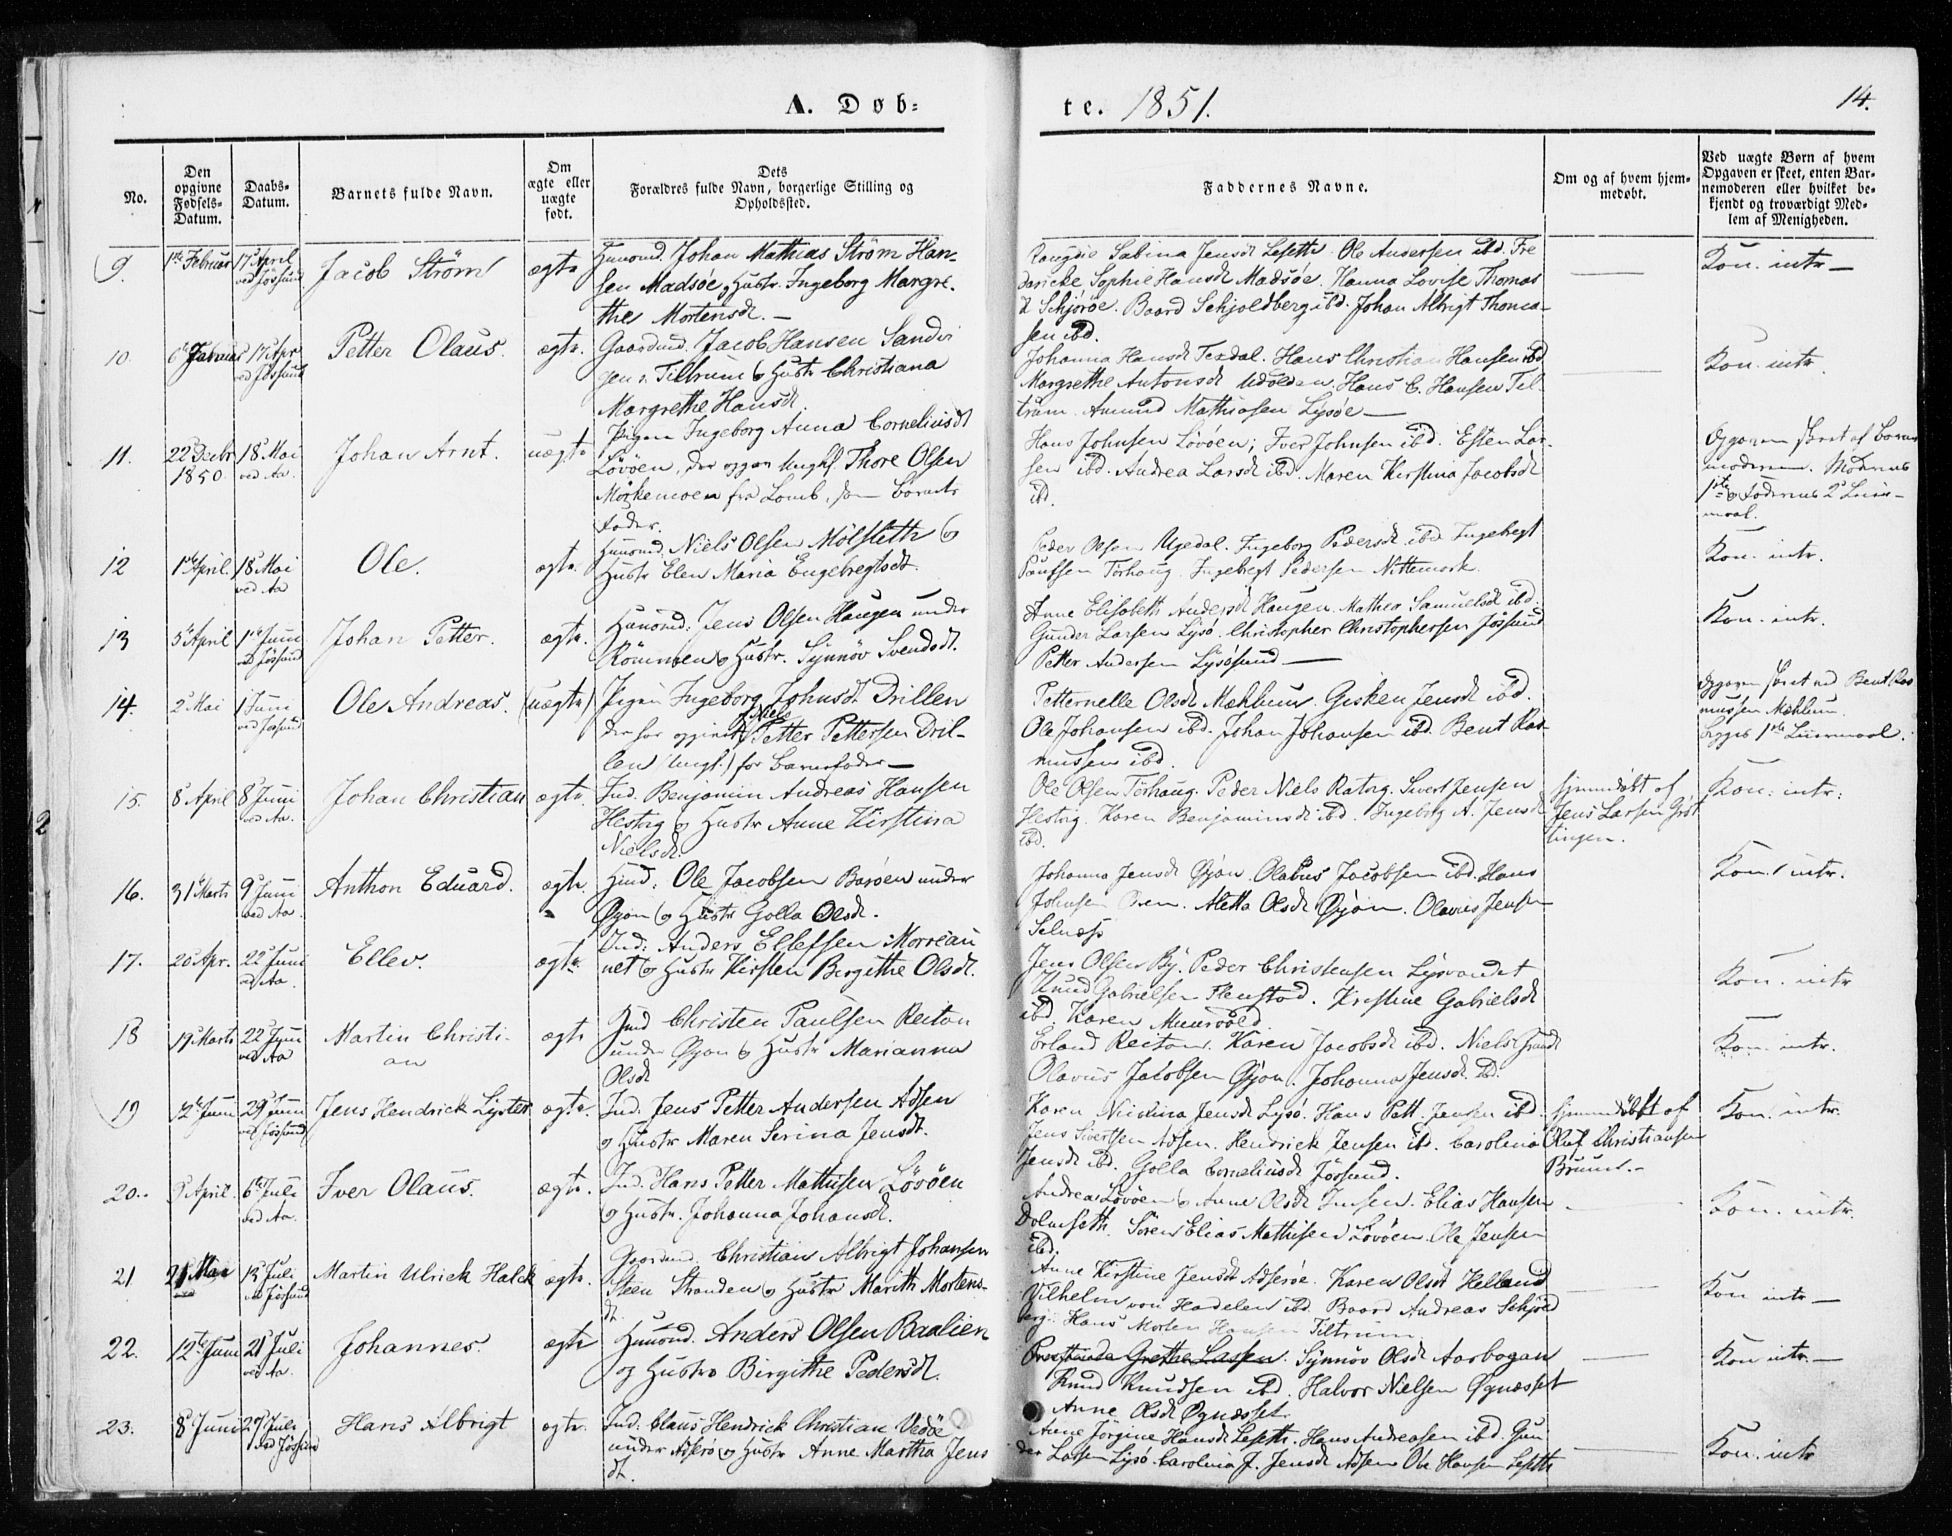 A. Døb-
te. 1851.
14.
No.
Den opgivne Fødsels-Datum.
Daabs-Datum.
Barnets fulde Navn.
Om ægte eller uægte født.
Dets Forældres fulde Navn, borgerlige Stilling og Opholdssted.
Faddernes Navne.
Om og af hvem hjem-medøbt.
Ved uægte Børn af hvem Opgaven er skeet, enten Bar-nemoderen eller hvilket be-kjendt og troværdigt Med-lem af Menigheden.
9. 1ste Februar 17 April ved Jøssund Jacob Ström ægte
Huusmd. Johan Mathias Ström Han-
sen Madsöe og Hustr. Ingeborg Margre-
the Mortensdt. —
Sabina Jensdt Leseth. Ole Andersen ibd. Fre
dericke Sophie Hansdt Madsöe. Hanna Lovise Thomas
dt Schjöröe. Baard Schjoldberg ibd. Johan Albrigt Thoma-
sen ibd.
Kon. intr —
10. 6 Februar 17 Apr ved Jøssund Petter Olaus. ægte.
Gaardmd. Jacob Hansen Sandvi
gen v. Tiltrum og Hustr Christiana
Margrethe Hansdt.
Johanna Hansdt Texdal. Hans Christian Hansen ibd
Margrethe Antonsdt Udolden. Hans C. Hansen Til-
trum. Amund Mathiasen Lysöe —
Kon. intr.
11. 22 Decbr 1850. 18 Mai ved Aa. Johan Arnt. uægte
Pigen Ingeborg Anna Corneliusdt
Lövöen, der opgav Ungk. Thore Olsen
Mörkemoen fra Lomb, som Barnets
Fader.
Hans Johnsen Lövöen; Iver Johnsen ibd. Esten Lar-
sen ibd. Andrea Larsdt ibd. Maren Kirstina Jacobsdt
ibd.
Opgaven skeet af Barne
moderen. Moderens
1ste og Faderens 2d Leier-
maal.
12 1ste April. 18 Mai ved Aa Ole. ægte.
Huusmd. Niels Olsen Mölsleth og
Hustr Elen Maria Engebregtsdt.
Peder Olsen Ugedal. Ingeborg Pedersdt ibd. Ingebregt
Paulsen Torhaug. Ingebregt Pedersen Nittemark.
Kon. intr.
13 5 April 1ste Juni ved Jøssund Johan Petter. ægte.
Huusmd. Jens Olsen Haugen under
Römmen og Hustr. Synnöv Svendsdt.
Anne Elisabeth Andersdt Haugen. Mathea Samuelsdt ibd.
Gunder Larsen Lysö. Christopher Christophersen Jössund
Petter Andersen Lysösund —
Kon. intr.
14. 2 Mai 1 Juni ved Jøssund Ole Andreas. (uægte)
Pigen Ingeborg Johnsdt Drillen
der har opgivet Niels Petter Pettersen Dril-
len (Ungk.) for Barnefader —
Petternelle Olsdt Mæhbuur. Gisken Jensdt ibd.
Ole Johansen ibd. Johan Johansen ibd. Bent Ras-
mussen ibd.
Opgaven skeet ved Bent Ras
mussen Mæhbuur.
Begges 1ste Leiermaal.
15. 8 April 8 Juni ved Aa. Johan Christian ægte.
Ind. Benjamin Andreas Hansen
Hestvig og Hustr Anne Kirstina
Nielsdt.
Ole Olsen Torhaug. Peder Niels Ratvig. Sivert Jensen
Hestvig. Karen Benjaminsdt ibd. Ingeborg A. Jensdt
ibd.
hjemmedøbt af
Jens Larsen Grøt
tingen.
Kon: intr:
16. 31 Marts 9 Juni ved Aa. Anthon Eduard. ægte.
Hmd: Ole Jacobsen Baröen under
Øyan og Hustr Golla Olsdt.
Johanna Jensdt Øyan. Olaus Jacobsen ibd. Hans
Johnsen Osen. Aletta Olsdt Øyan. Olavus Jensen
Selness
Kon. intr.
17. 20 Apr. 22 Juni ved Aa. Ellev. ægte.
Ind: Anders Ellefsen Morreau
net og Hustr Kirsten Birgithe Olsdt.
Jens Olsen By. Peder Christensen Lysvandet
Knud Gabrielsen Flenstad. Kirstine Gabrielsdt
ibd. Karen Muurvold
Kon. intr
18 19 Marts 22 Juni ved Aa Martin Christi-
an ægte
Hmd Christen Paulsen Reitan
under Øyan og Hustr Marianna
Olsdt
Erland Reitan. Karen Jacobsdt ibd. Niels Grandt
Olavus Jacobsen Øyan. Johanna Jensdt ibd.
Kon. intr.
19 12 Juni 29 Juni ved Jøssund Jens Hendrick Lyster ægte.
Ind. Jens Petter Andersen Adsen
og Hustr Maren Serina Jensdt.
Karen Nicolina Jensdt Lysö. Hans Pett. Jensen ibd.
Jens Sivertsen Adsen. Hendrick Jensen ibd. Carolina
Jensdt ibd. Golla Corneliusdt Jössund.
hjemmedøbt af
Oluf Christiansen
Bruun. -
Kon. intr.
20.. April. 6te Juli ved Aa. Iver Olaus. ægte.
Ind. Hans Petter Mathisen Lövöen
og Hustr. Johanna Johansdt.
Andrea Lövöen og Anne Olsdt. Elias Hansen
Dolmseth. Sören Elias Mathisen Lövöen. Ole Jensen
ibd.
Kon. intr.
21 21 Mai 13 Juli ved Jøssund Martin Ulrick Halck ægte.
Gaardmd. Christian Albrigt Johansen
Steen Stranden og Hustr Marith Mortens-
dt.
Anne Kirstine Jensdt Adseröe. Karen Olsdt Helland
Vilhelm von Hadelen ibd. Baard Andreas Schjold
berg. Hans Morten Hansen Tiltrum.
Kon intr —
22. 12te Juni 21 Juli ved Aa. Johannes. ægte
Huusmd. Anders Olsen Baalien
og Hustru Birgithe Pedersdt.
Grethe Lassen. Synnöv Olsdt Aarbogan
Knud Knudsen ibd. Halvor Nielsen Øgnæsset
Anne Olsdt Øgnæsset.
Kon intr. —
23. 8 Juni 27 Juli ved Jøssund Hans Albrigt ægte.
Ind. Claus Hendrick Christian Vedöe
under Adserö og Hustr Anne Martha Jens
dt.
Anne Jörgine Hansdt Leseth. Hans Andreasen ibd. Gun
der Larsen Lysö. Carolina J. Jensdt Adsen Ole Hansen Leseth
Kon. intr